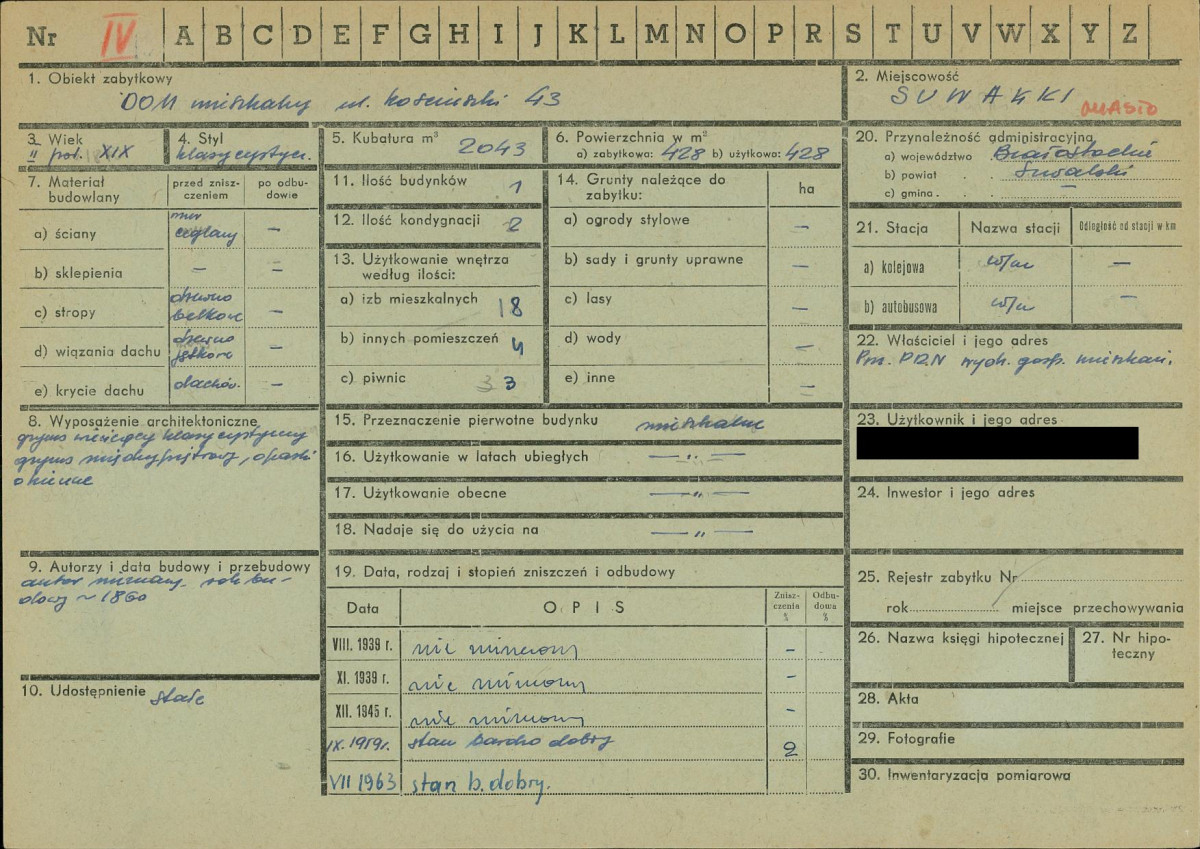 Nr IV A B C D E F G H I J K L M N O P R S T U V W X Y Z
1. Obiekt zabytkowy
DOM mieszkalny ul. Kościuszki 43
2. Miejscowość
SUWAŁKI
MIASTO
3. Wiek
II poł. XIX
4. Styl
klasycystycz.
5. Kubatura m³ 2043
6. Powierzchnia w m²
a) zabytkowa: 428 b) użytkowa: 428
7. Materiał budowlany
przed zniszczeniem
po odbudowie
a) ściany
mur
ceglany –
b) sklepienia – =
c) stropy
drewno
belkowe –
d) wiązania dachu
drewno
jętkowe –
e) krycie dachu dachów. –
8. Wyposażenie architektoniczne
gzyms wieńczący klasycystyczny
gzyms międzypiętrowy, opaski
okienne
9. Autorzy i data budowy i przebudowy
autor nieznany. rok bu-
dowy ~ 1860
10. Udostępnienie stałe
11. Ilość budynków 1
12. Ilość kondygnacji 2
13. Użytkowanie wnętrza
według ilości:
a) izb mieszkalnych 18
b) innych pomieszczeń 4
c) piwnic 3 3
14. Grunty należące do
zabytku:
ha
a) ogrody stylowe –
b) sady i grunty uprawne –
c) lasy –
d) wody –
e) inne =
15. Przeznaczenie pierwotne budynku mieszkalne
16. Użytkowanie w latach ubiegłych — „ —
17. Użytkowanie obecne — „ —
18. Nadaje się do użycia na — „ —
19. Data, rodzaj i stopień zniszczeń i odbudowy
Data
OPIS
Zniszczenia %
Odbudowa %
VIII. 1939 r. nie zniszczony –
XI. 1939 r. nie zniszczony –
XII. 1945 r. nie zniszczony –
IX. 1959r. stan bardzo dobry 2
VII 1963 stan b. dobry.
20. Przynależność administracyjna
a) województwo Białostockie
b) powiat suwalski
c) gmina –
21. Stacja
Nazwa stacji
Odległość od stacji w km
a) kolejowa w/m –
b) autobusowa w/m –
22. Właściciel i jego adres
Prez. PRN wydz. gosp. mieszkan.
23. Użytkownik i jego adres
24. Inwestor i jego adres
25. Rejestr zabytku Nr
rok miejsce przechowywania
26. Nazwa księgi hipotecznej
27. Nr hipoteczny
28. Akta
29. Fotografie
30. Inwentaryzacja pomiarowa